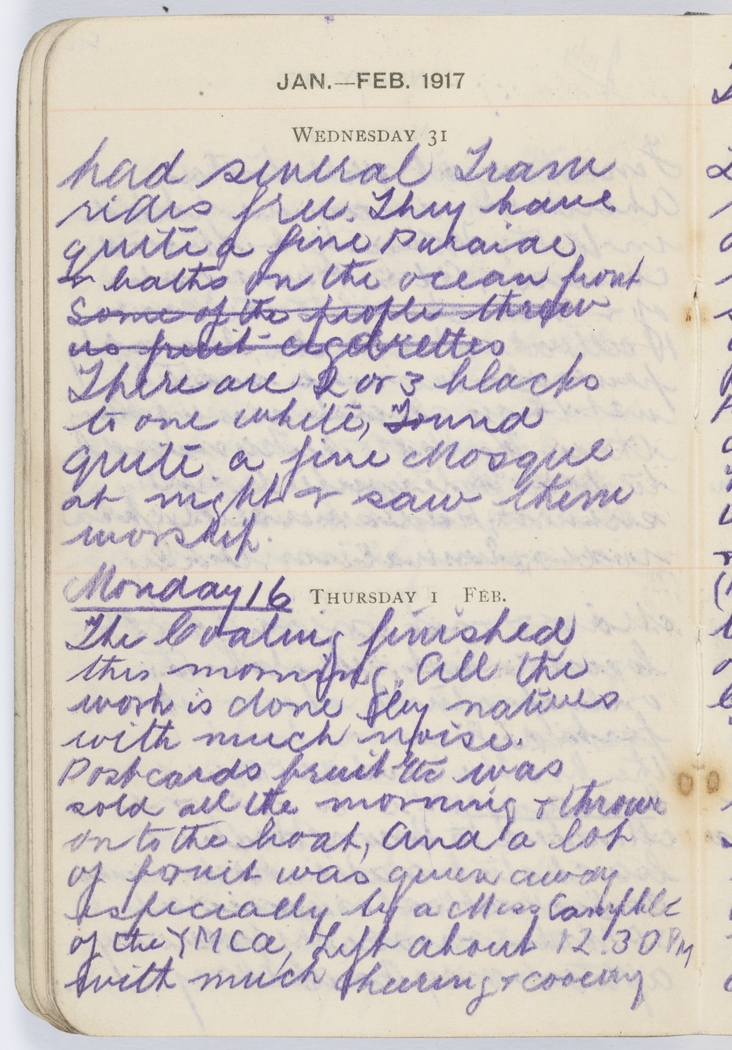 JAN.—FEB. 1917
WEDNESDAY 31
had several Tram
rides free. They have
quite a fine Paraide
& baths on the ocean front
Some of the people throw
us fruit cigebrettes
There are 2 or 3 blacks
to one white, Found
quite a fine Mosque
at night & saw them
worship.
Monday 16 THURSDAY 1 FEB.
The Coaling finished
this morning, All the
work is done by natives
with much noise.
Postcards fruit etc was
sold all the morning & throwr
on to the boat, And a lot
of fruit was given away
especially by a Miss Campble
of the YMCA, Left about 12.30 PM
with much cheering & cooeey